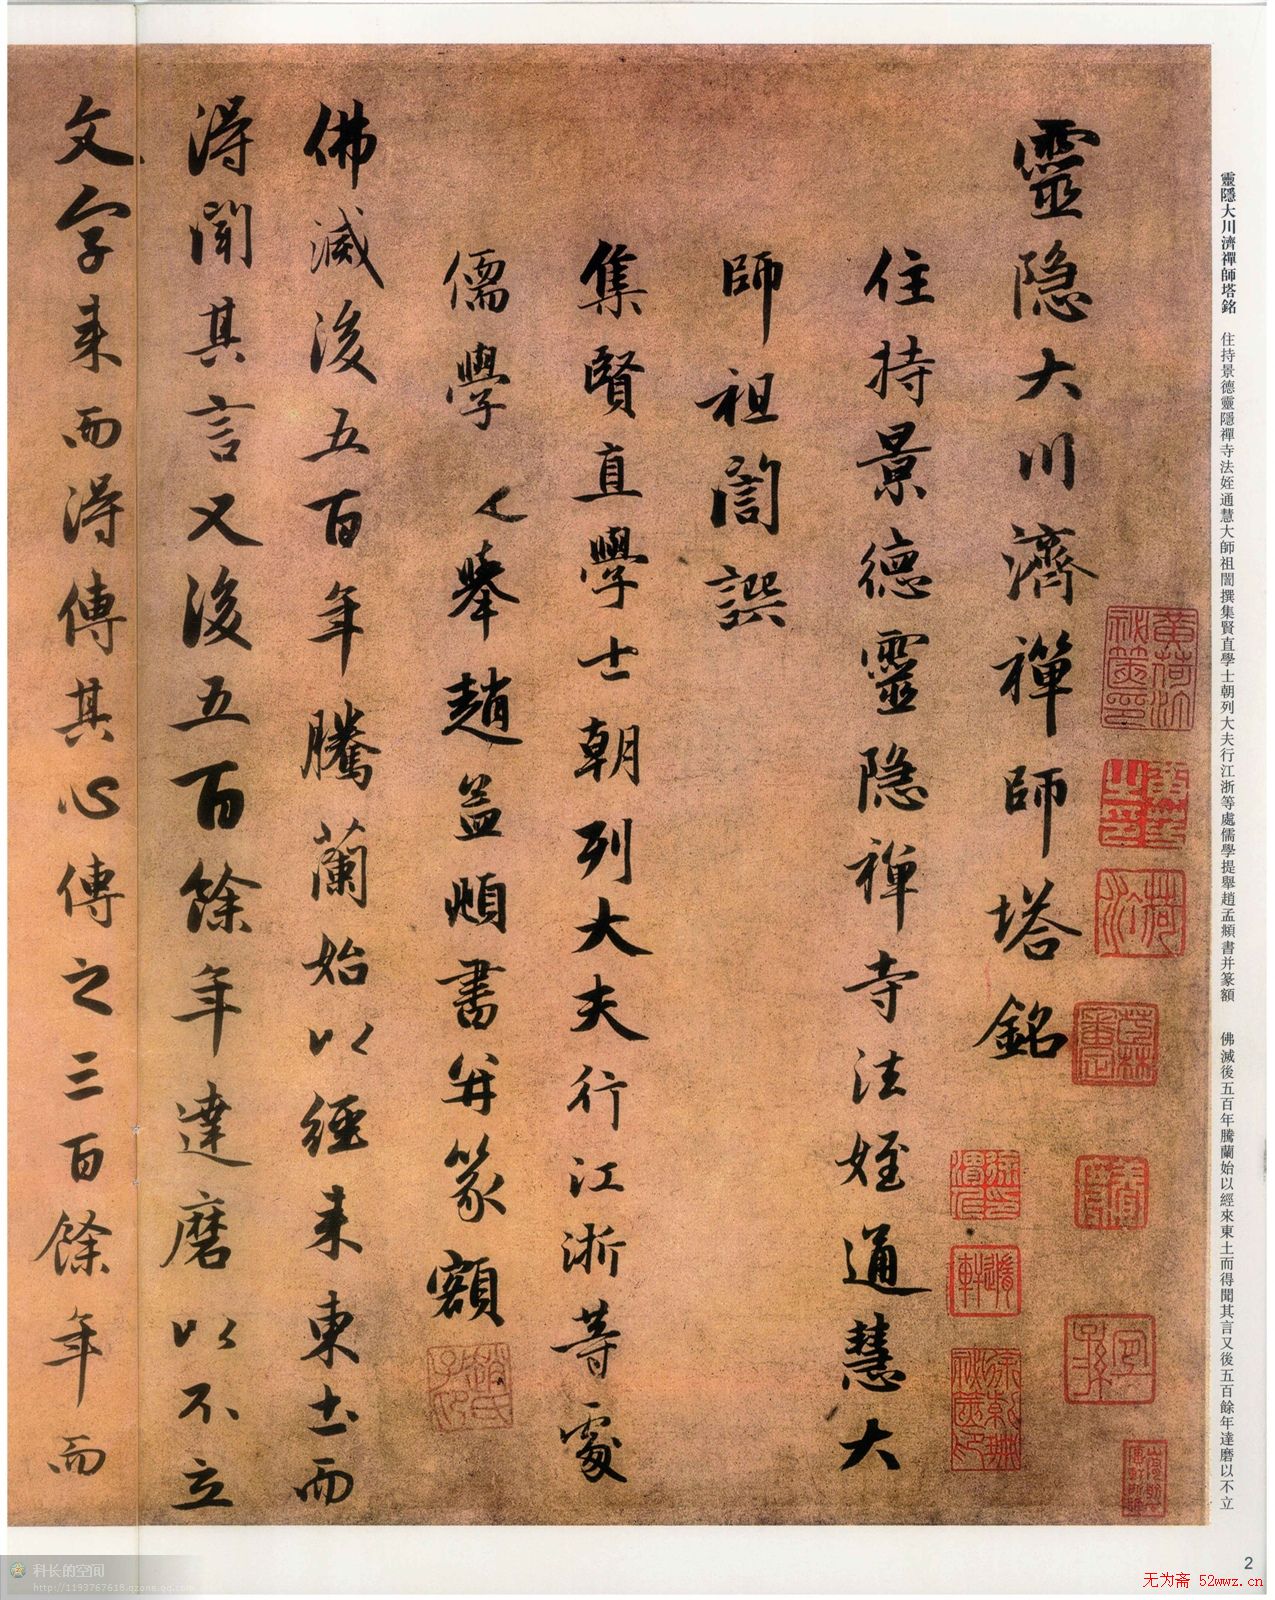 靈隱大川濟禪師塔銘 住持景德靈隱禪寺法姪通慧大師祖誾撰集賢直學士朝列大夫行江浙等處儒學提舉趙孟頫書并篆額 佛滅後五百年騰蘭始以經來東土而得聞其言又後五百餘年達磨以不立
靈隐大川濟禪師塔銘
住持景德靈隐禪寺法姪通慧大
師祖誾譔
集賢直學士朝列大夫行江浙等處
儒學舉趙孟頫書并篆額
趙氏子昂
佛滅後五百年騰蘭始以經来東土而
得聞其言又後五百餘年達磨以不立
文字来而得傳其心傳之三百餘年而
2
科长的空间
http://1193767618.qzone.qq.com
无为斋 52wwz.cn